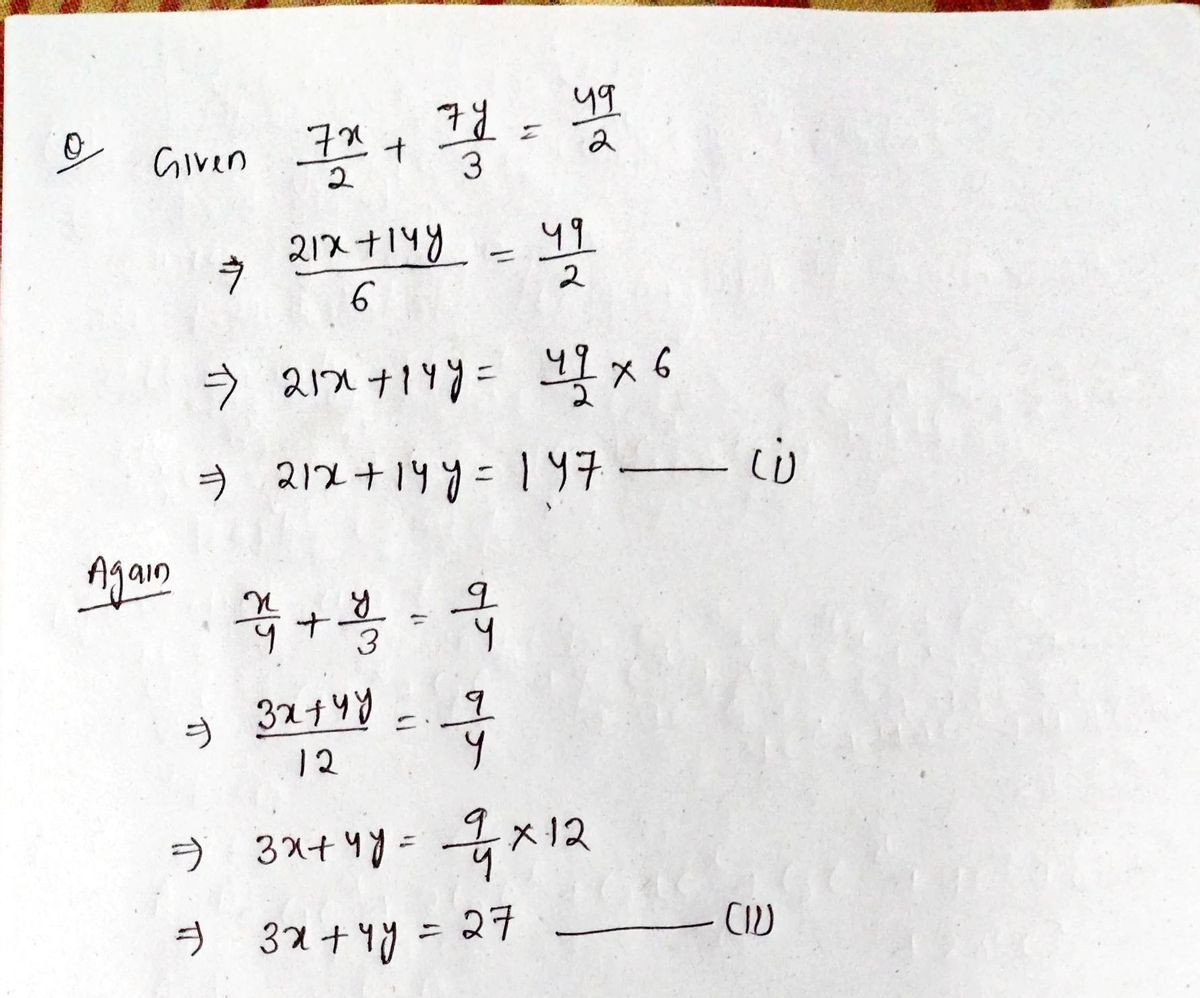 Q Given 7x/2 + 7y/3 = 49/2
⇒ (21x+14y)/6 = 49/2
⇒ 21x+14y = 49/2 × 6
⇒ 21x+14y = 147 —— (i)
Again
x/4 + y/3 = 9/4
⇒ (3x+4y)/12 = 9/4
⇒ 3x+4y = 9/4 × 12
⇒ 3x+4y = 27 —— (ii)